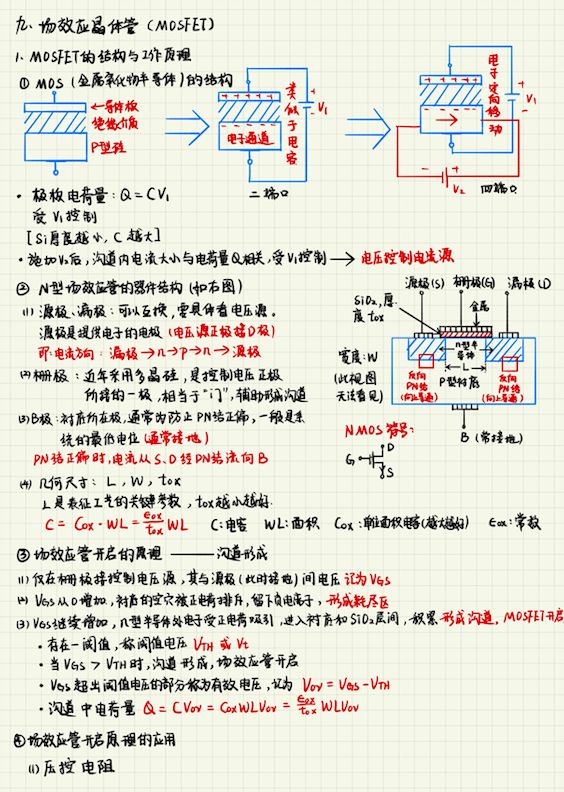 九、场效应晶体管（MOSFET）
1. MOSFET的结构与工作原理
① MOS（金属氧化物半导体）的结构
导体板
绝缘介质
P型硅
+ + + + +
- - - - -
电子通道
类似于电容
+
-
V₁
二端口
+ + + + +
- - - - -
电子定向移动
+
-
V₁
- +
V₂
四端口
· 极板电荷量：Q = CV₁
受 V₁控制
[Si厚度越小，C 越大]
· 施加V₂后，沟道内电流大小与电荷量Q相关，受V₁控制 → 电压控制电流源
② N型场效应管的器件结构（如右图）
(1) 源极、漏极：可以互换，需具体看电压源。
源极是提供电子的电极（电压源正极接D极）
即：电流方向：漏极→n→P→n→源极
(2) 栅极：近年采用多晶硅，是控制电压正极
所接的一极，相当于“门”，辅助形成沟道
(3) B极：衬底所在极，通常为防止PN结正偏，一般是系
统的最低电位（通常接地）
PN结正偏时，电流从S、D经PN结流向B
源极(S) 栅极(G) 漏极(D)
SiO₂，厚度tox
金属
n型半导体
L
宽度：W
（此视图无法看见）
反向PN结（向上导通）
P型衬底
反向PN结（向上导通）
B（常接地）
NMOS 符号：
G
D
S
(4) 几何尺寸：L，W，tox
L是表征工艺的关键参数，tox越小越好.
C = Cox·WL = εox/tox WL C：电容 WL：面积 Cox：单位面积电容（越大越好） εox：常数
③ 场效应管开启的原理 —— 沟道形成
(1) 仅在栅极接控制电压源，其与源极（此时接地）间电压 记为VGS
(2) VGS从0增加，衬底的空穴被正电荷排斥，留下负电离子，形成耗尽区
(3) VGS继续增加，n型半导体处电子受正电荷吸引，进入衬底和SiO₂层间，积累形成沟道，MOSFET开启
· 存在一阈值，称阈值电压 VTH 或 Vt
· 当VGS > VTH时，沟道形成，场效应管开启
· VGS超出阈值电压的部分称为有效电压，记为 Vov = VGS - VTH
· 沟道中电荷量 Q = CVov = CoxWLVov = εox/tox WLVov
④ 场效应管开启原理的应用
(1) 压控电阻